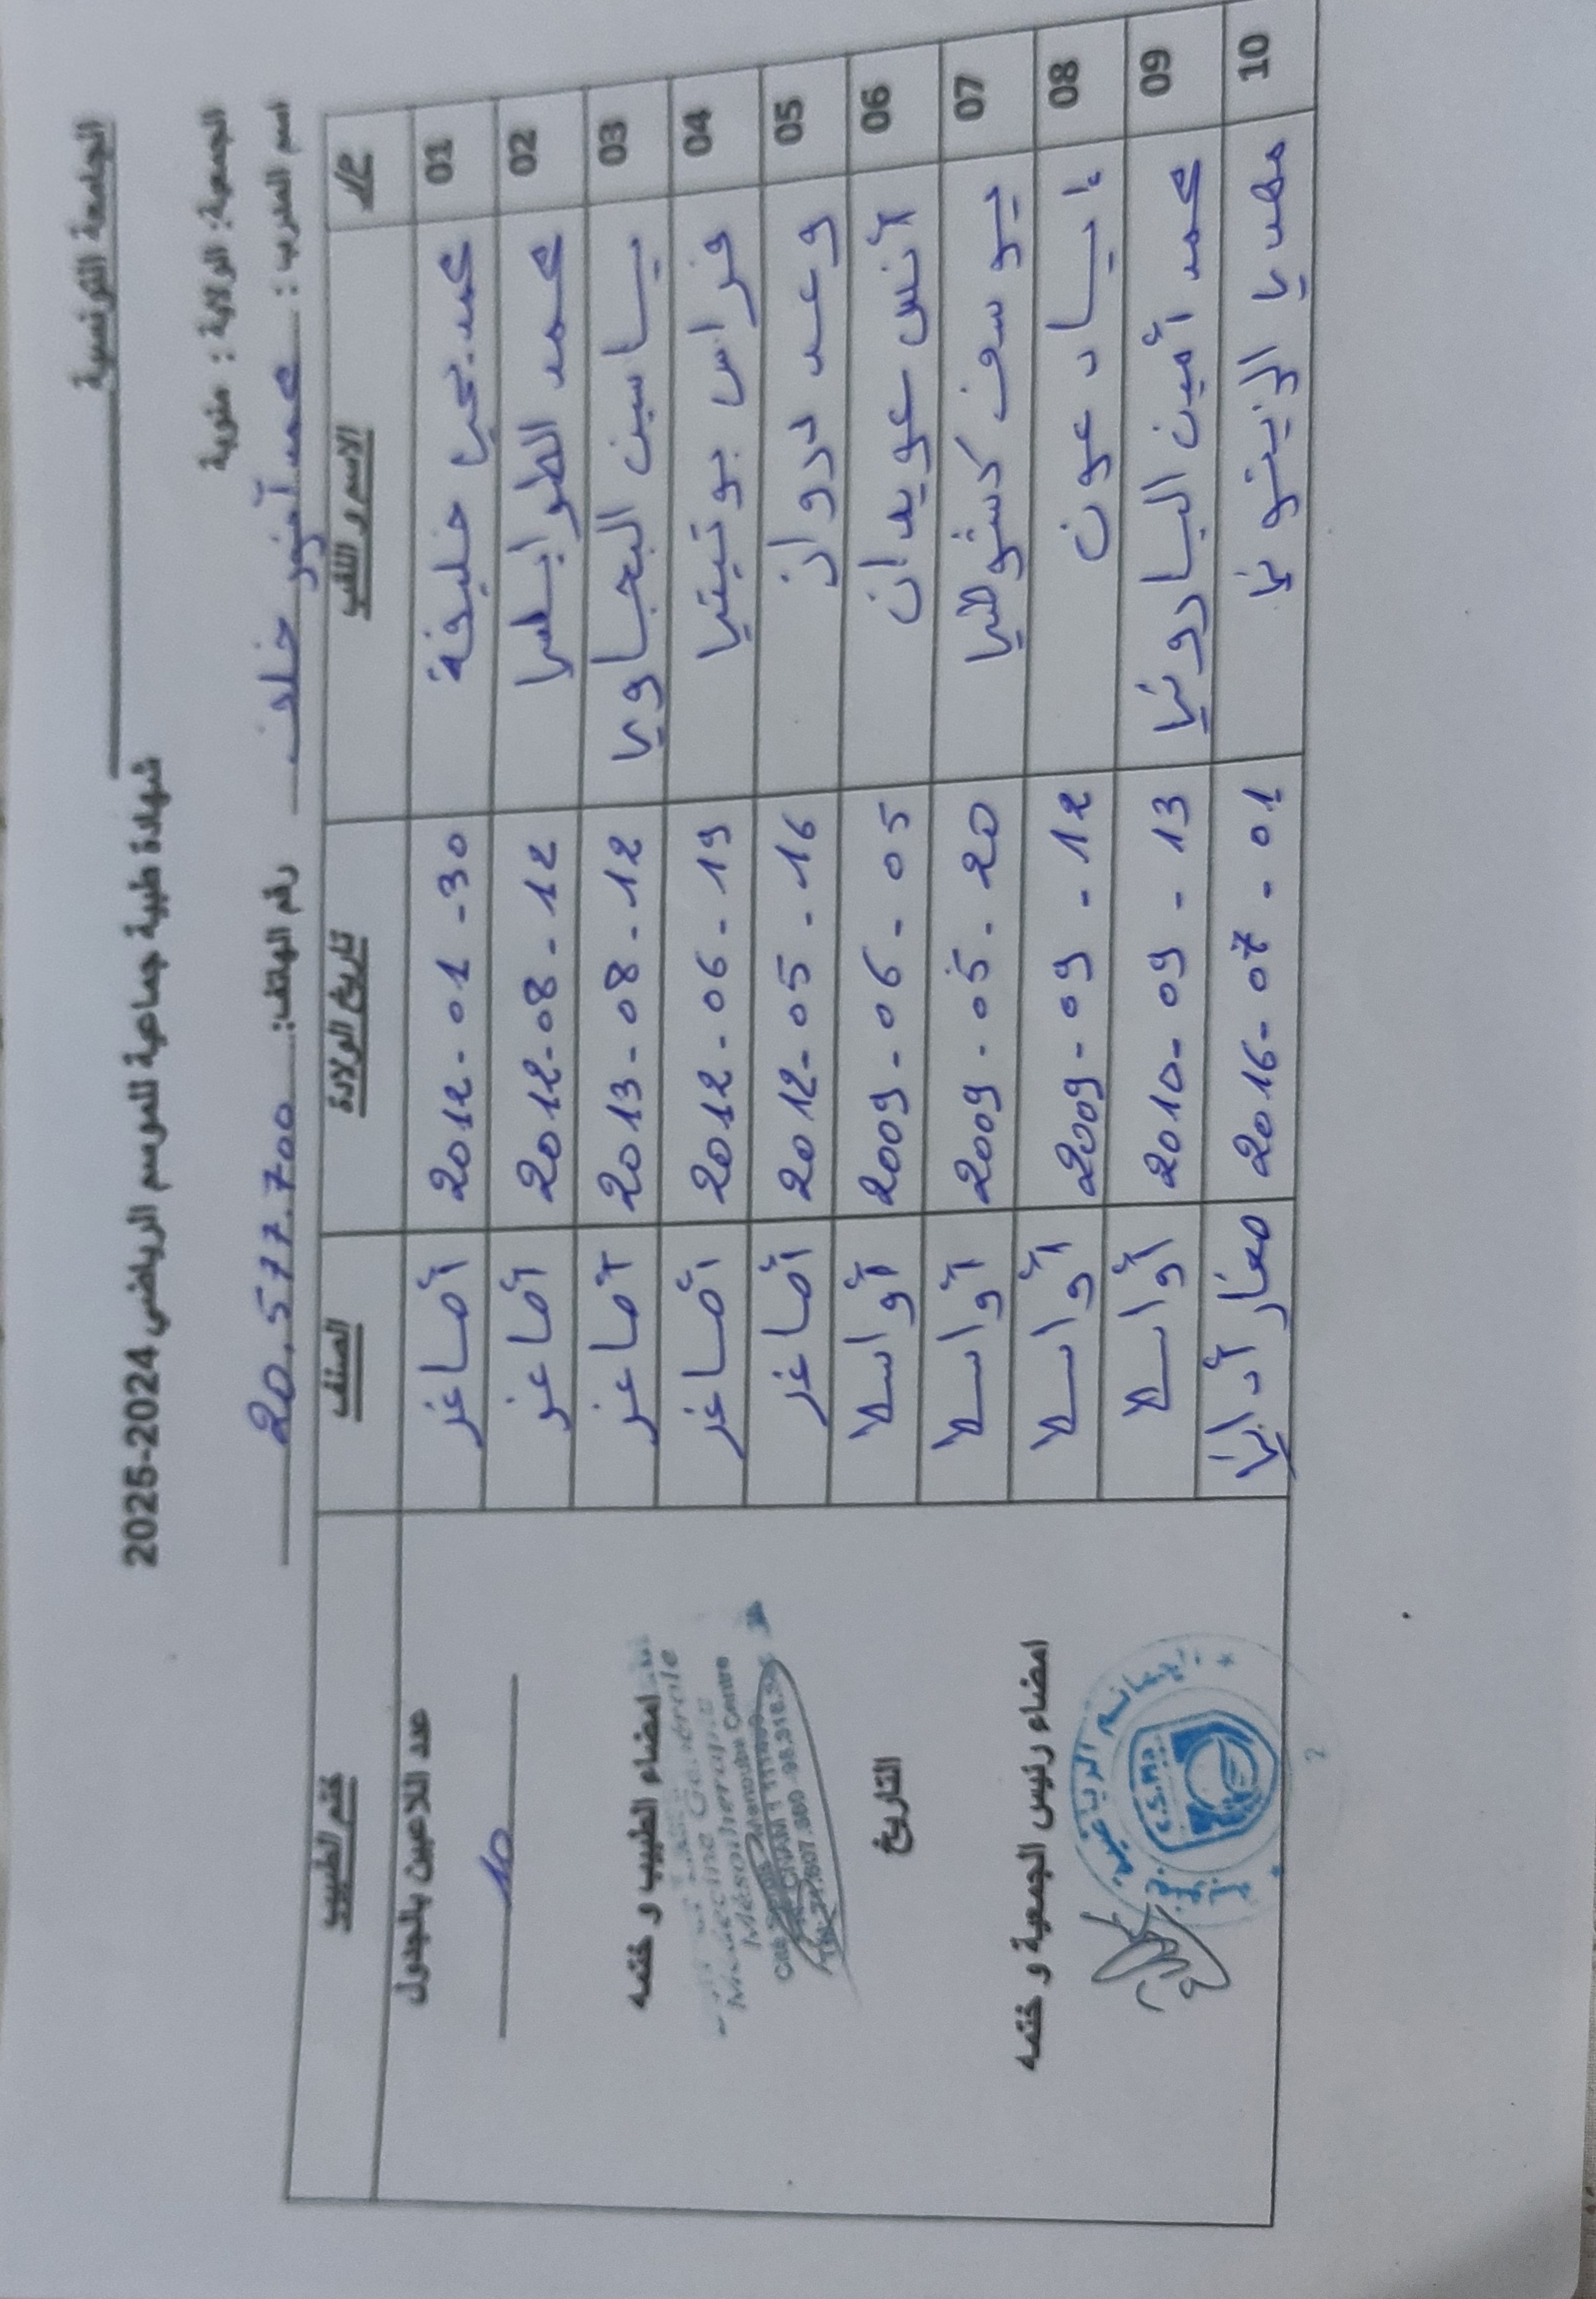 الجامعة التونسية
شهادة طبية جماعية للموسم الرياضي 2024-2025
الجمعية: الولاية : منوبة
اسم المدرب : محمد أنور خلف رقم الهاتف: 20.577.700
ع/ر الاسم و اللقب تاريخ الولادة الصنف ختم الطبيب
01 محمد يحيى خليفة 2012-01-30 أصاغر
02 محمد الطرابلسي 2012-08-12 أصاغر
03 ياسين البجاوي 2013-08-12 أصاغر
04 فراس بوتيتي 2012-06-19 أصاغر
05 وعد دروان 2012-05-16 أصاغر
06 أنس عويدان 2009-06-05 أواسط
07 يوسف كشوطي 2009-05-20 أواسط
08 إياد عون 2009-09-12 أواسط
09 محمد أمين الباروني 2010-09-13 أواسط
10 الزيتوني 2016-07-01 صغار أداني
عدد اللاعبين بالجدول
10
امضاء الطبيب و ختمه
Médecine Générale
Mésothérapie
Manouba Centre
التاريخ
امضاء رئيس الجمعية و ختمه
الرياضية
C.S.M.